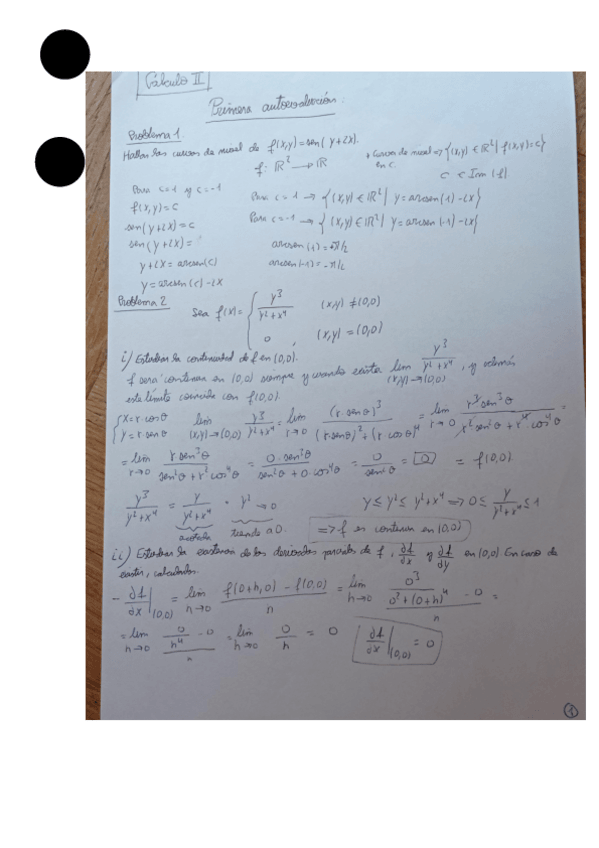 Cálculo II
Primera autoevaluación.
Problema 1.
Hallar las curvas de nivel de f(x,y)=sen(y+2x).
f: ℝ² → ℝ
* Curvas de nivel => {(x,y) ∈ ℝ² | f(x,y)=c}
en c.
c ∈ Im(f)
Para c=1 y c=-1
f(x,y)=c
sen(y+2x)=c
sen(y+2x)=
y+2x=arcsen(c)
y=arcsen(c)-2x
Para c=1 → {(x,y) ∈ ℝ² | y=arcsen(1)-2x}
Para c=-1 → {(x,y) ∈ ℝ² | y=arcsen(-1)-2x}
arcsen(1)=π/2
arcsen(-1)=-π/2
Problema 2
Sea f(x)= { y³/(y²+x⁴) (x,y)≠(0,0)
0, (x,y)=(0,0)
i) Estudiar la continuidad de f en (0,0).
f será continua en (0,0) siempre y cuando exista lim (x,y)→(0,0) y³/(y²+x⁴), y además
este límite coincida con f(0,0).
{x=r cosθ
y=r senθ
lim (x,y)→(0,0) y³/(y²+x⁴) = lim r→0 (r senθ)³/((r senθ)²+(r cosθ)⁴) = lim r→0 r³sen³θ/(r²sen²θ+r⁴cos⁴θ) =
= lim r→0 r sen³θ/(sen²θ+r²cos⁴θ) = 0·sen³θ/(sen²θ+0·cos⁴θ) = 0/sen²θ = 0 = f(0,0).
y³/(y²+x⁴) = y/(y²+x⁴) · y² → 0
acotada
tiende a 0.
y ≤ y² ≤ y²+x⁴ => 0 ≤ y/(y²+x⁴) ≤ 1
=> f es continua en (0,0)
ii) Estudiar la existencia de las derivadas parciales de f, ∂f/∂x y ∂f/∂y en (0,0). En caso de
existir, calcularlas.
- ∂f/∂x|(0,0) = lim h→0 (f(0+h,0)-f(0,0))/h = lim h→0 (0³/(0²+(0+h)⁴) - 0)/h =
= lim h→0 (0/h⁴ - 0)/h = lim h→0 0/h = 0
∂f/∂x|(0,0) = 0
1